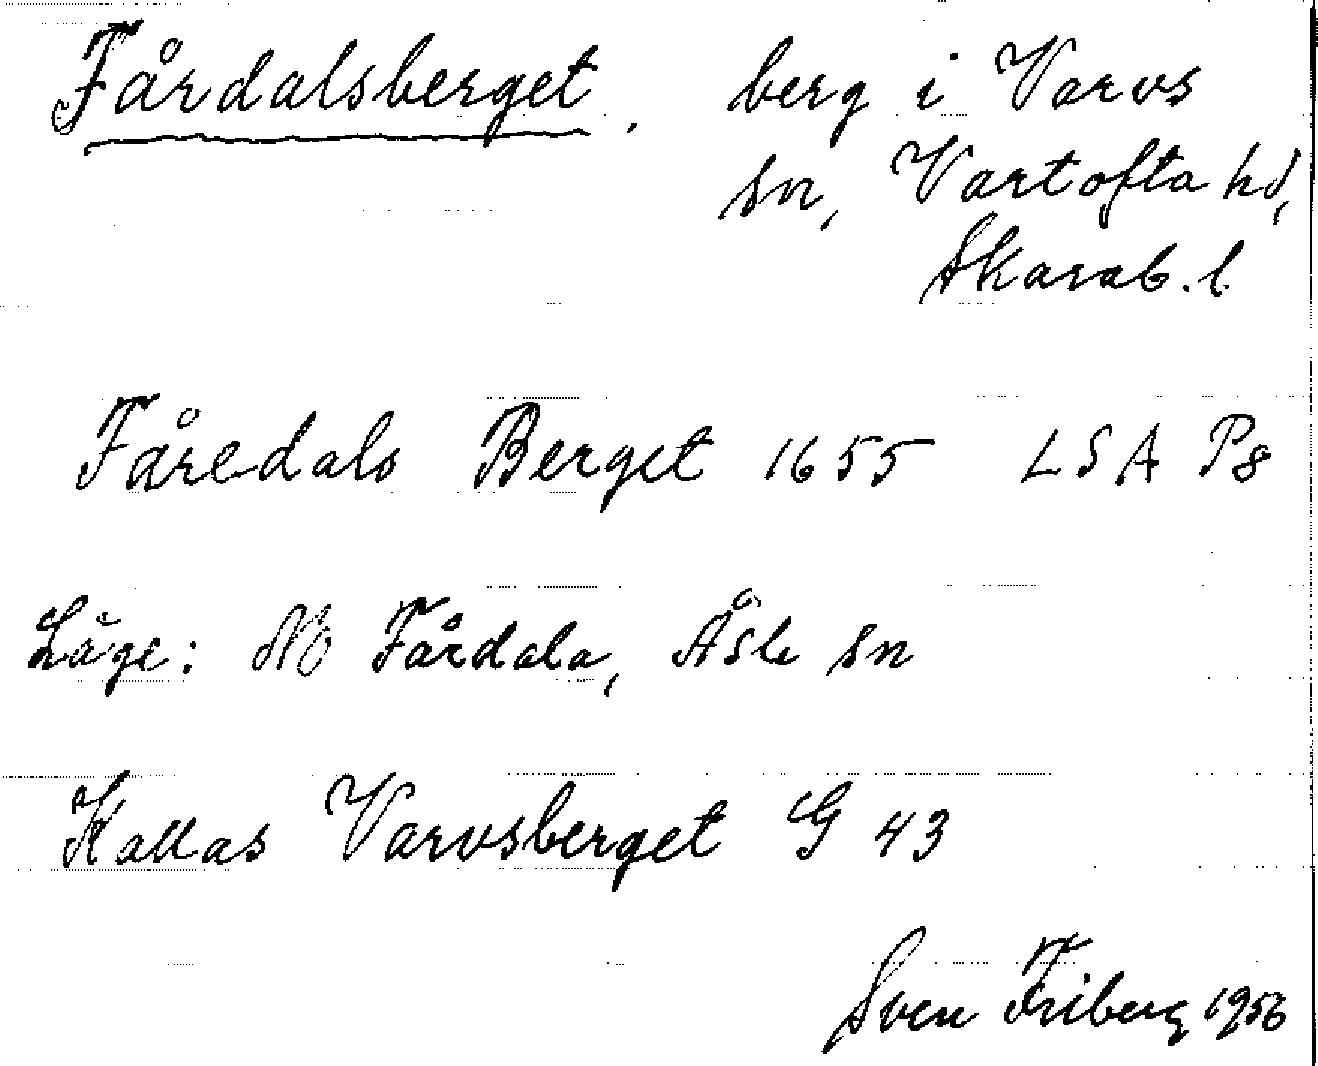 Fårdalsberget, berg i Varvs
sn, Vartofta hd,
Skarab. l.
Fåredals Berget 1655 LSA P8
Läge: NO Fårdala, Åsle sn
Kallas Varvsberget G 43
Sven Friberg 1956